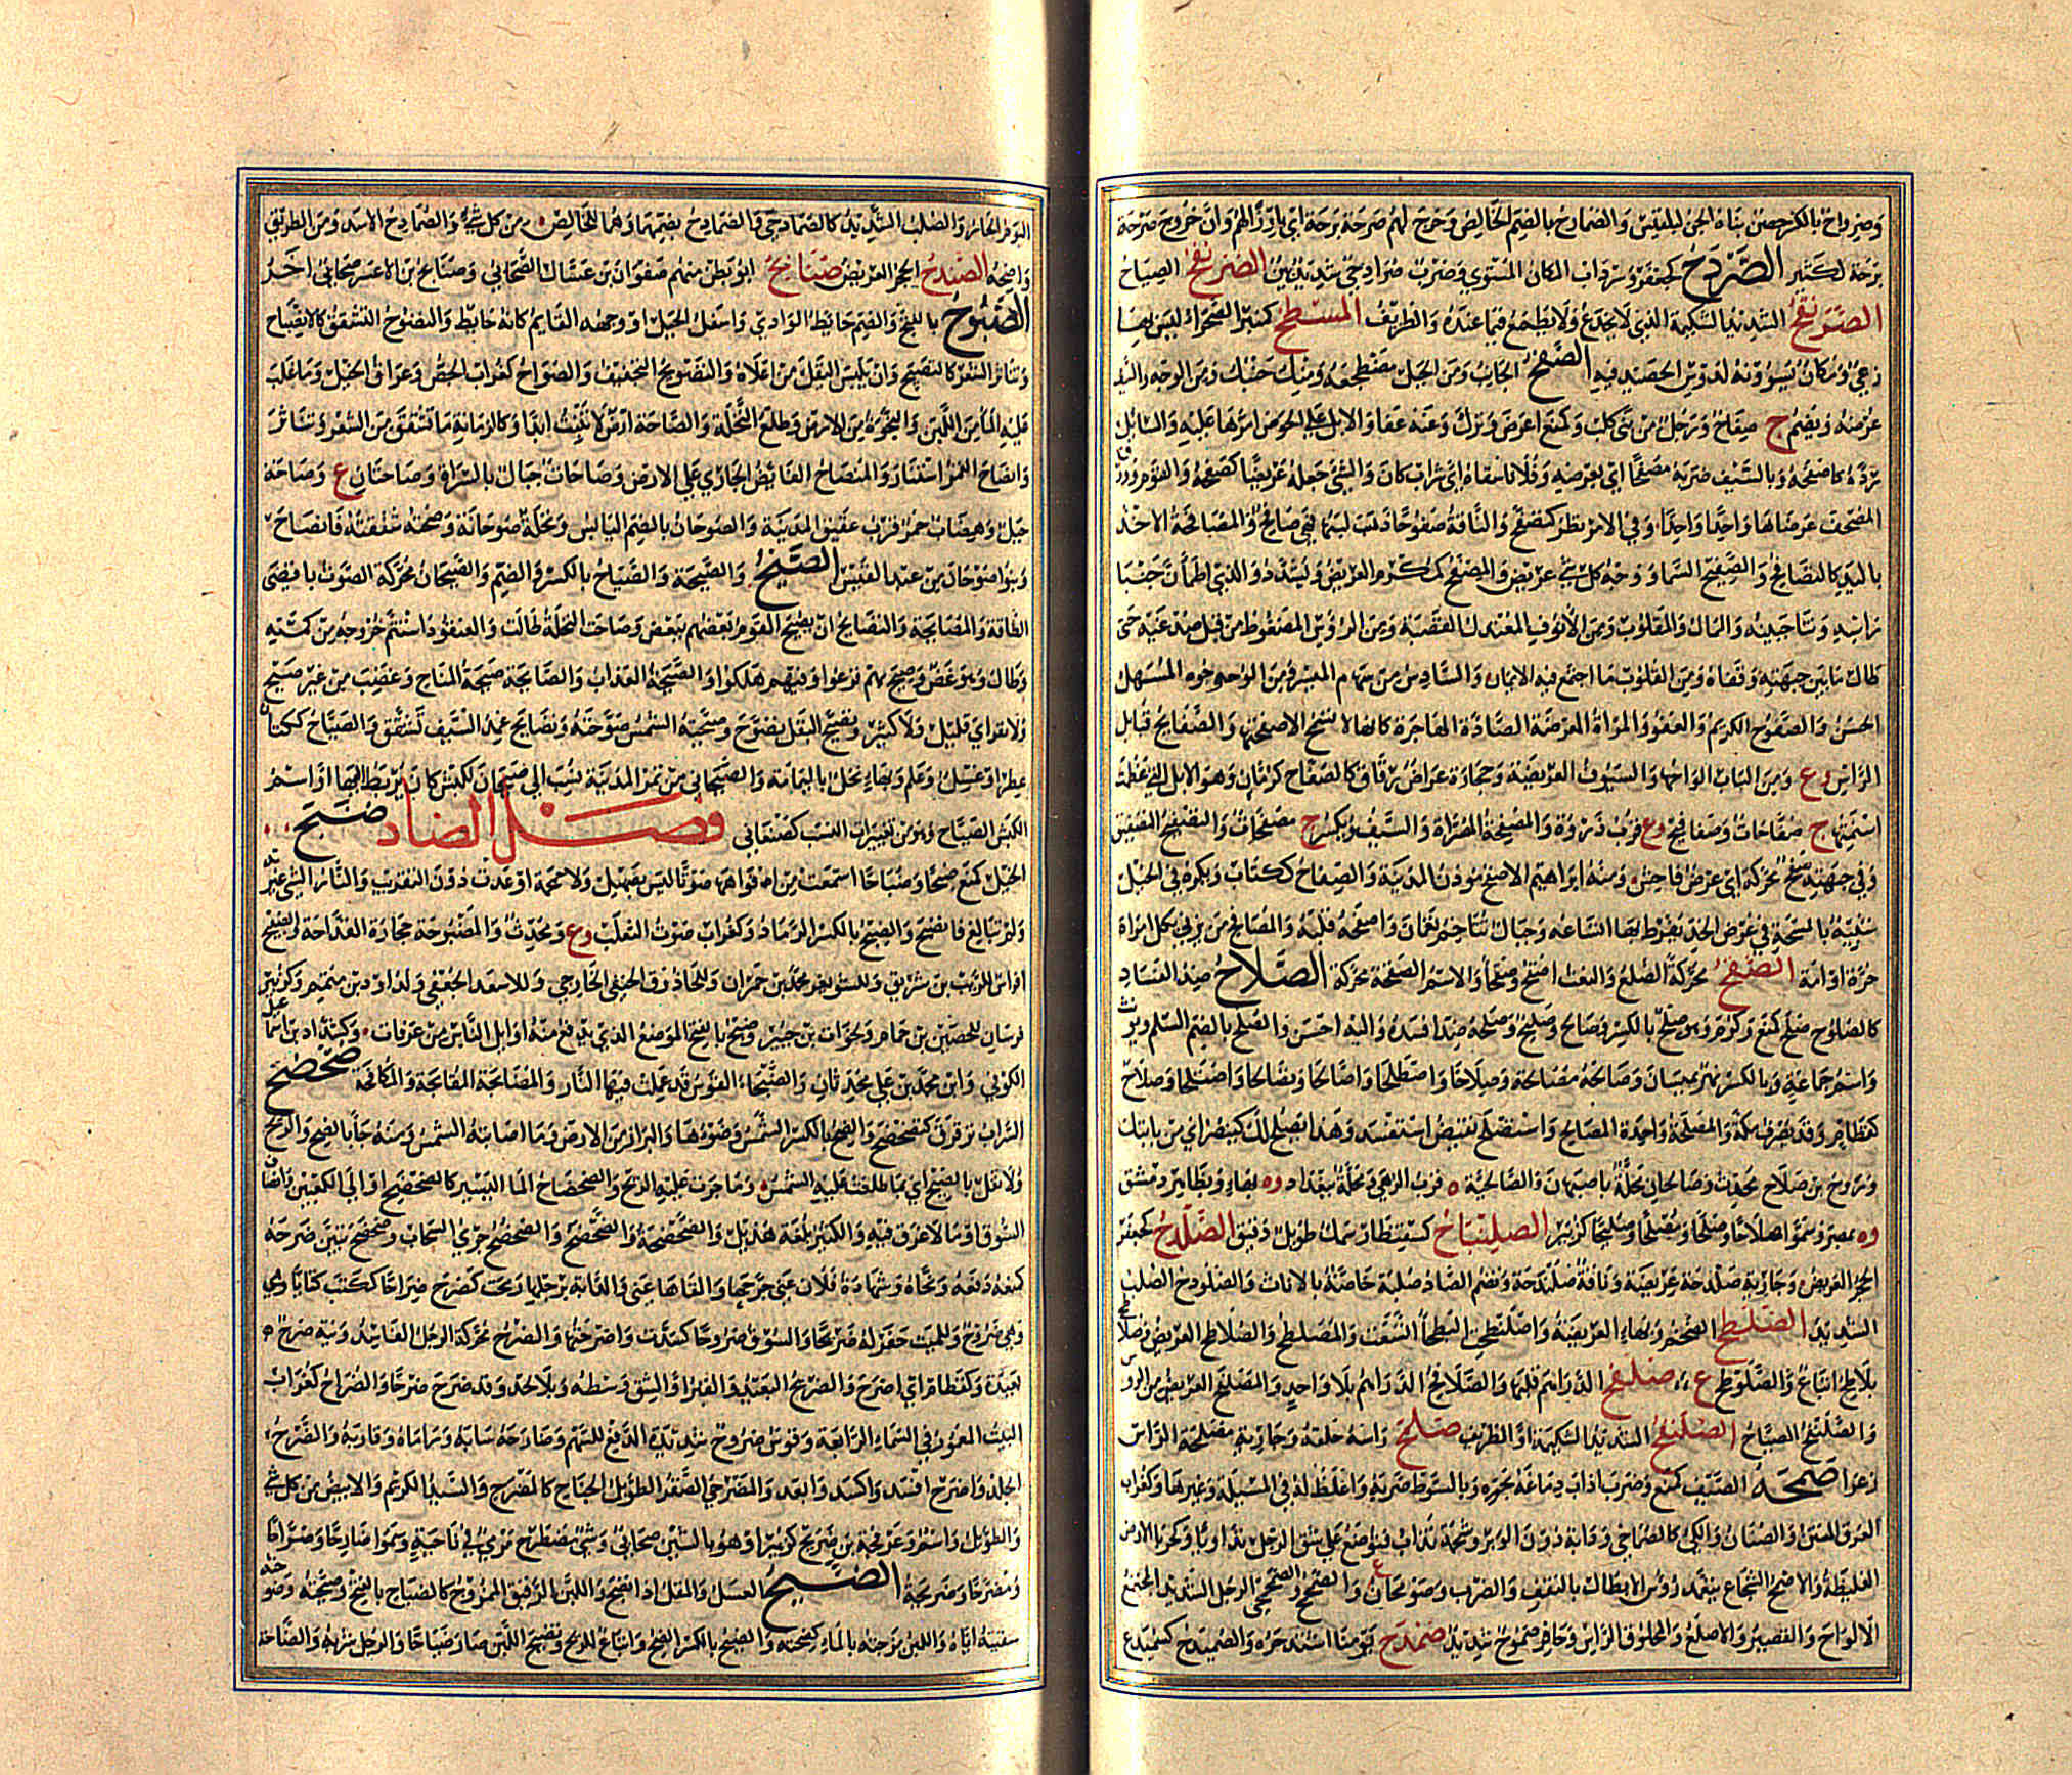 وصرواح بالكسر حصن بناه الجن لبلقيس والصمارح بالضم الخالص وخرج لهم صرحة برحة اي بارزا لهم وان خروج صرحة
برحة لكثير الصردح كجعفر وسرداب المكان المستوي وضرب صرادحي شديد بين الصرنفح الصياح
الصرنقح الشديد الشكيمة الذي لا يخدع ولا يطمع فيما عنده والظريف المسطح كمنبر الصحراء ليس بها
رعي ومكان يسوونه لدوس الحصيد فيه الصفح الجانب ومن الجبل مضطجعه ومنك جنبك ومن الوجه والسيف
عرضه ويضم ج صفاح ورجل من بني كلب وكمنع اعرض وترك وعنه عفا والابل على الحوض امرها عليه والسائل
رده كاصفحه وبالسيف ضربه مصفحا اي بعرضه وفلانا سقاه اي شراب كان والشيء جعله عريضا كصفحه والقوم وورق
المصحف عرضها واحدا واحدا وفي الامر نظر كتصفح والناقة صفوحا ذهب لبنها فهي صافح والمصافحة الاخذ
باليد كالتصافح والصفيح السماء ووجه كل شيء عريض والمصفح كمكرم العريض ويشدد والذي اطمأن جنبا
راسه ونتا جبينه والممال والمقلوب ومن الانوف المعتدل القصبة ومن الرؤس المضغوط من قبل صدغيه حتى
طال ما بين جبهته وقفاه ومن القلوب ما اجتمع فيه الايمان والسادس من سهام الميسر ومن الوجوه السهل
الحسن والصفوح الكريم والعفو والمرأة المعرضة الصادة الهاجرة كانها لا تسمح الا صفحتها والصفائح قبائل
الراس وع ومن الباب الواحها والسيوف العريضة وحجارة عراض رقاق كالصفاح كرمان وهو الابل التي عظمت
اسنمتها ج صفاحات وصفافيح وع قرب ذروة والمصفحة المصراة والسيف ويكسر ج مصفحات والتصفيح التصفيق
وفي جبهته صفح محركة اي عرض فاحش ومنه ابراهيم الاصفح مؤذن المدينة والصفاح ككتاب ويكره في الخيل
شبيه بالمسحة في عرض الخد يفرط بها اتساعه وجبال تتاخم نعمان واصفحه قلبه والمصافح من يزني بكل امرأة
حرة او امة الصقح محركة الصلع والنعت اصقح وصقحاء والاسم الصقحة محركة الصلاح ضد الفساد
كالصلوح صلح كمنع وكرم وهو صلح بالكسر وصالح وصليح واصلحه ضد افسده واليه احسن والصلح بالضم السلم ويؤنث
واسم جماعة وبالكسر نهر بميسان وصالحه مصالحة وصلاحا واصطلحا واصالحا وتصالحا واصتلحا وصلاح
كقطام وقد يصرف مكة والمصلحة واحدة المصالح واستصلح نقيض استفسد وهذا يصلح لك كينصر اي من بابتك
وروح بن صلاح محدث وصالحان محلة باصبهان والصالحية ة قرب الرهى ومحلة ببغداد وة بها وبظاهر دمشق
وة بمصر وسموا صلاحا وصلحا ومصلحا وصليحا كزبير الصلنباح كسقنطار سمك طويل دقيق الصلدح كجعفر
الحجر العريض وجارية صلدحة عريضة وناقة صلندحة وتضم الصاد صلبة خاصة بالاناث والصلودح الصلب
الشديد الصلطح الضخم وبهاء العريضة واصلنطح البطحاء اتسعت والمصلطح والصلاطح العريض وصلاطح
بلاطح اتباع والصلوطح ع صلفح الدراهم قلبها والصلافح الدراهم بلا واحد والمصلفح العريض من الرؤس
والصلنفح الصياح الصلنقح الشديد الشكيمة او الظريف صلمح راسه حلقه وجارية مصلمحة الراس
زعراء صمحه الصيف كمنع وضرب اذاب دماغه بحره وبالسوط ضربه واغلظ له في المسئلة وغيرها وكغراب
العرق المنتن والصنان والكي كالصماحي ودابة دون الوبر وشحمة تذاب فتوضع على شق الرجل تداويا وكحرباء الارض
الغليظة والاصمح الشجاع يتعمد رؤس الابطال بالنقف والضرب وصومحان ع والصمحمح والصمحمحي الرجل الشديد المجتمع
الالواح والقصير والاصلع والمحلوق الراس وحافر صموح شديد صمدح يومنا اشتد حره والصميدح كسميدع
اليوم الحار والصلب الشديد كالصمادحي والصمادح بضمهما وهما الخالص من كل شيء والصمادح الاسد ومن الطريق
واضحه الصندح الحجر العريض صنابح ابو بطن منهم صفوان بن عسال الصحابي وصنابح بن الاعسر صحابي اخر
الصوح بالفتح والضم حائط الوادي واسفل الجبل او وجهه القائم كانه حائط والتصوح التشقق كالانصياح
وتناثر الشعر كالتصيح وان ييبس البقل من اعلاه والتصويح التجفيف والصواح كغراب الجص وعرق الخيل وما غلب
عليه الماء من اللبن والنجوة من الارض وطلع النخلة والصاحة ارض لا تنبت ابدا وكالرمانة ما تشقق من الشعر وتناثر
وانصاح القمر استنار والمنصاح الفائض الجاري على الارض وصاحات جبال بالسراة وصاحتان ع وصاحة
جبل وهضاب حمر قرب عقيق المدينة والصوحان بالضم اليابس ونخلة صوحانة وصحته شققته فانصاح
وبنو صوحان من عبد القيس الصيح والصيحة والصياح بالكسر والضم والصيحان محركة الصوت باقصى
الطاقة والمصايحة والتصايح ان يصيح القوم بعضهم ببعض وصاحت النخلة طالت والعنقود استتم خروجه من كمته
وطال وهو غض وصيح بهم فزعوا وفيهم هلكوا والصيحة العذاب والصائحة صيحة المناحة وغضب من غير صيح
ولا نفر اي قليل ولا كثير وتصيح البقل تصوح وصيحته الشمس صوحته وتصايح غمد السيف تشقق والصياح ككتان
عطر او غسل وعلم وبهاء نخل باليمامة والصيحاني من تمر المدينة نسب الى صيحان لكبش كان يربط اليها او اسم
الكبش الصياح وهو من تغييرات النسب كصنعاني فصل الضاد ضبح
الخيل كمنع ضبحا وضباحا اسمعت من افواهها صوتا ليس بصهيل ولا حمحمة او عدت دون التقريب والنار الشيء غيرته
ولم تبالغ فانضبح والضبح بالكسر الرماد وكغراب صوت الثعلب وع ومحدث والمضبوحة حجارة القداحة والضبيح
افراس للريب بن شريق وللشويعر محمد بن حمران وللحازوق الحنفي الخارجي وللاسعر الجعفي ولداود بن متمم وكزبير
فرسان للحصين بن حمام ولخوات بن جبير وضبح بالفتح الموضع الذي يدفع منه اوائل الناس من عرفات وكشداد بن اسمعيل
الكوفي وابن محمد بن علي محدثان والضبحاء القوس قد عملت فيها النار والمضابحة المقابحة والمكافحة ضحضح
السراب ترقرق كتضحضح والضح بالكسر الشمس وضوءها والبراز من الارض وما اصابته الشمس ومنه جاء بالضح والريح
ولا تقل بالضيح اي بما طلعت عليه الشمس وما جرت عليه الريح والضحضاح الماء اليسير كالضحضح او الى الكعبين وانصاف
السوق او ما لا غرق فيه والكثير بلغة هذيل والضحضحة والضحضح والضحضح جري السحاب وضحضح تبين ضرحه
كمنعه دفعه ونحاه وشهادة فلان عني جرحها والقاها عني والدابة برجلها رمحت كضرح ضراحا ككتب كتابا وهي
وهي ضروح وللميت حفر له ضريحا والسوق ضروحا كسدت واضرحتها والضرح محركة الرجل الفاسد ونية ضرح
بعيدة وكقطام اي اضرح والضريح البعيد والقبر او الشق وسطه او بلا لحد وقد ضرح ضرحا والضراح كغراب
البيت المعمور في السماء الرابعة وقوس ضروح شديدة الدفع للسهم وضارحه سابه وراماه وقاربه والضرح
الجلد واضرح افسد واكسد وابعد والمضرحي الصقر الطويل الجناح كالمضرح والسيد الكريم والابيض من كل شيء
والطويل واسم وعرفجة بن ضريح كزبير او هو بالشين صحابي وشيء مضطرح مرمي في ناحية وسموا ضارحا وضراحا
ومضرحا وضريحة الضيح العسل والمقل اذا نضج واللبن الرقيق الممزوج كالضياح بالفتح وضيحته وضوحته
سقيته اياه واللبن مزجته بالماء كضحته والضيح بالكسر الضح واتباع للريح وتضيح اللبن صار ضياحا والرجل شربه والضاحة